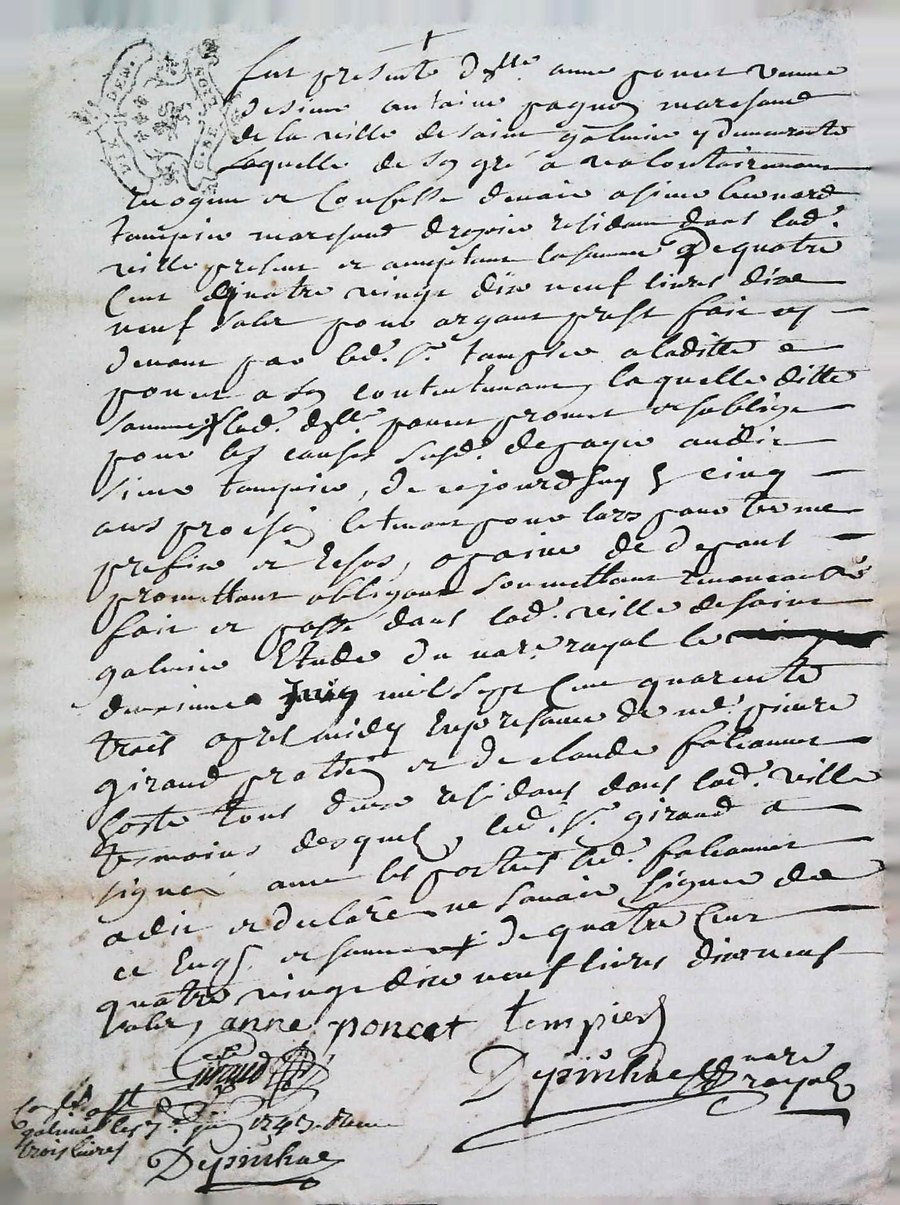 DIX DEN.
G. SE
LION
fut presente dlle anne poncet veuve
de sieur antoine pagnon marchand
de la ville de saint galmier y demeurante
laquelle de son gré a volontairement
Recognu et Confessé devoir a sieur bernard
tempier marchand droguier residant dans lad.
ville present et acceptant la somme De quatre
Cent quatre vingt dix neuf livres dixe
neuf solz pour argent prest fait cy
devant par led. Sr. tempier a laditte
poncet a son contentement, laquelle ditte
somme lad. dlle poncet promet et soblige
pour les causes susd. de payer audit
sieur tempier, de ce jourdhuy cinq
ans prochain le tenant pour lors pour terme
prefix et Eschu, a paine de depans
promettant obligeant soumettant renonceant
fait et passé dans lad. ville de saint
galmier Etude du note royal le
deuxieme Juin mil sept Cent quarente
trois apres midy En presance de me pierre
Giraud praticien et de claude falconnet
hoste tous deux residans dans lad. ville
tesmoins desquels led. Sr. giraud a
signé avec les parties led. falconnet
a dit et declaré ne savoir signer de
ce Enquis et sommé de quatre Cent
quatre vingt dix neuf livres dix neuf
solz, anne poncet tempier
Giraud
Depinhac note royal
galmier les 1743
trois livres
Depinhac